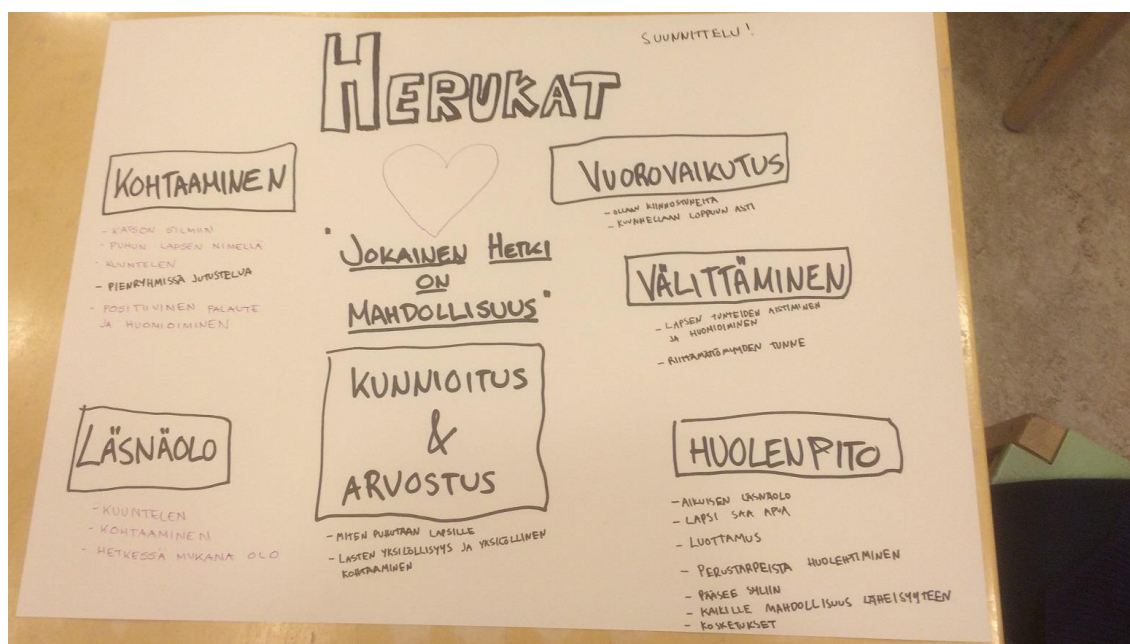 SUUNNITTELU!
HERUKAT
KOHTAAMINEN
- KATSON SILMIIN
- PUHUN LAPSEN NIMELLÄ
- KUUNTELEN
- PIENRYHMISSÄ JUTUSTELUA
- POSITIIVINEN PALAUTE
JA HUOMIOIMINEN
"JOKAINEN HETKI
ON
MAHDOLLISUUS"
VUOROVAIKUTUS
- OLLAAN KIINNOSTUNEITA
- KUUNNELLAAN LOPPUUN ASTI
VÄLITTÄMINEN
- LAPSEN TUNTEIDEN AISTIMINEN
JA HUOMIOIMINEN
- RIITTÄMÄTTÖMYYDEN TUNNE
LÄSNÄOLO
- KUUNTELEN
- KOHTAAMINEN
- HETKESSÄ MUKANA OLO
KUNNIOITUS
&
ARVOSTUS
- MITEN PUHUTAAN LAPSILLE
- LASTEN YKSILÖLLISYYS JA YKSILÖLLINEN
KOHTAAMINEN
HUOLENPITO
- AIKUISEN LÄSNÄOLO
- LAPSI SAA APUA
- LUOTTAMUS
- PERUSTARPEISTA HUOLEHTIMINEN
- PÄÄSEE SYLIIN
- KAIKILLE MAHDOLLISUUS LÄHEISYYTEEN
- KOSKETUKSET